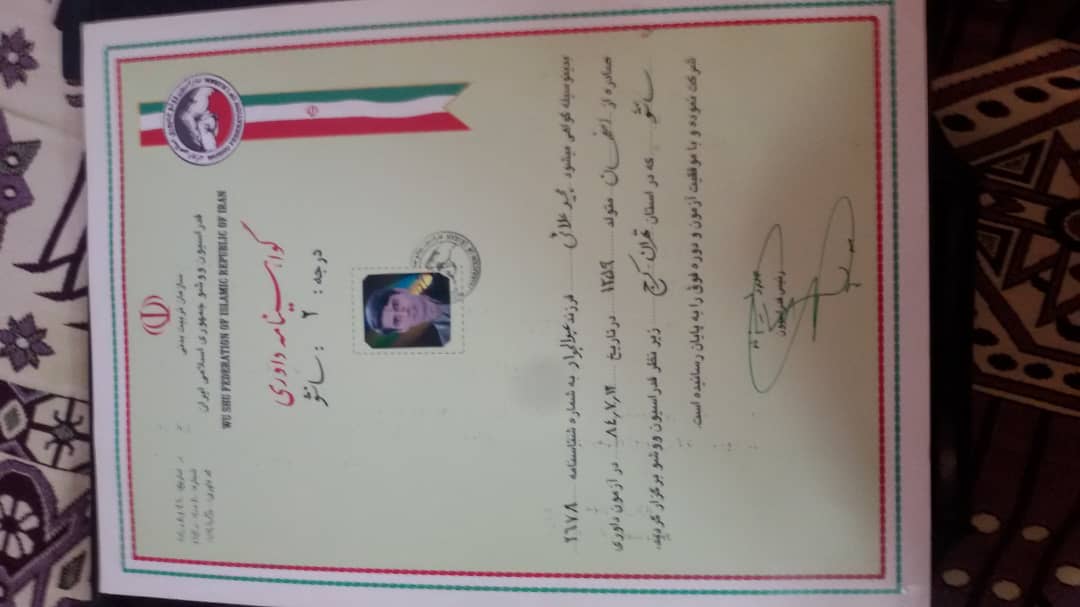 سازمان تربیت بدنی
فدراسیون ووشو جمهوری اسلامی ایران
WU SHU FEDERATION OF ISLAMIC REPUBLIC OF IRAN
گواهینامه داوری
درجه : ۲ : سانشو
بدینوسیله گواهی میشود مجید علائی فرزند عبدالجبار به شماره شناسنامه ۲۶۷۸
صادره از متولد ۱۳۵۹ در تاریخ ۸۴,۷,۱۴ در آزمون داوری
سانشو که در استان تهران کرج زیر نظر فدراسیون ووشو برگزار گردید،
شرکت نموده و با موفقیت آزمون و دوره فوق را به پایان رسانیده است.
رئیس فدراسیون